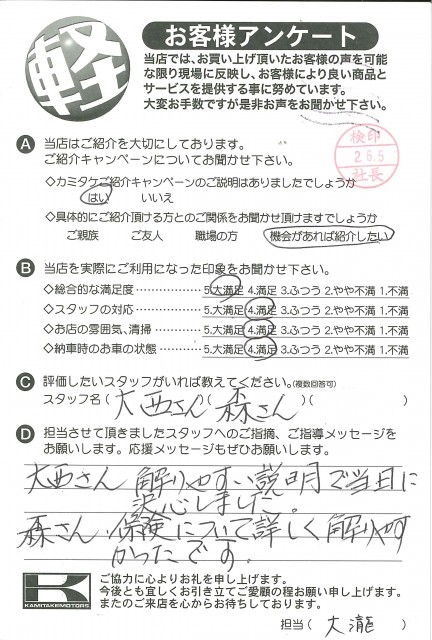 軽
お客様アンケート
当店では、お買い上げ頂いたお客様の声を可能
な限り現場に反映し、お客様により良い商品と
サービスを提供する事に努めています。
大変お手数ですが是非お声をお聞かせ下さい。
検印
2.6.5
社長
A 当店はご紹介を大切にしております。
ご紹介キャンペーンについてお聞かせ下さい。
◇カミタケご紹介キャンペーンのご説明はありましたでしょうか
はい いいえ
◇具体的にご紹介頂ける方とのご関係をお聞かせ頂けますでしょうか
ご親族 ご友人 職場の方 機会があれば紹介したい
B 当店を実際にご利用になった印象をお聞かせ下さい。
◇総合的な満足度……………… 5.大満足 4.満足 3.ふつう 2.やや不満 1.不満
◇スタッフの対応……………… 5.大満足 4.満足 3.ふつう 2.やや不満 1.不満
◇お店の雰囲気、清掃………… 5.大満足 4.満足 3.ふつう 2.やや不満 1.不満
◇納車時のお車の状態………… 5.大満足 4.満足 3.ふつう 2.やや不満 1.不満
C 評価したいスタッフがいれば教えてください。(複数回答可)
スタッフ名( 大西さん )( 森さん )( )
D 担当させて頂きましたスタッフへのご指摘、ご指導メッセージを
お願いします。応援メッセージもぜひお願いします。
大西さん 解りやすい説明で当日に
決心しました。
森さん 保険について詳しく解りやす
かったです。
K
KAMITAKEMOTORS
ご協力に心よりお礼を申し上げます。
今後とも宜しくお引き立てご愛顧の程お願い申し上げます。
またのご来店を心からお待ちしております。
担当( 大瀧 )